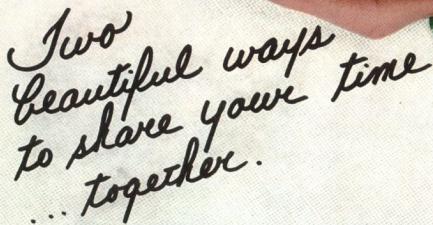 Two
beautiful ways
to share your time
... together.